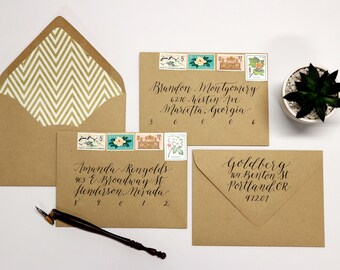 Brandon Montgomery
6210 Westin Ave
Marietta, Georgia
30006
Amanda Reynolds
903 E Broadway St
Henderson, Nevada
89012
Goldberg
Benton St
Portland, OR
97201